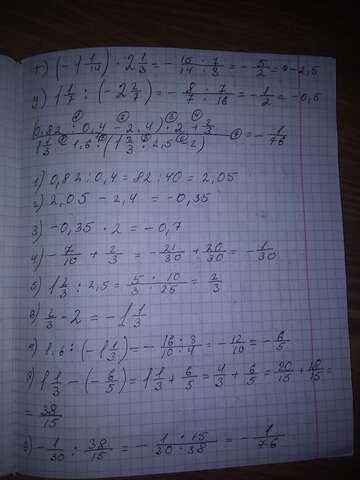 т) (-1 1/14) · 2 1/3 = - 15 · 7 / 14 · 3 = - 5/2 = -2,5
у) 1 1/7 : (-2 2/7) = - 8 · 7 / 7 · 16 = - 1/2 = -0,5
(0,82 : 0,4 - 2,4) · 2 + 2/3
1 1/3 - 1,6 : (1 2/3 : 2,5 - 2) = - 1/76
1) 0,82 : 0,4 = 82 : 40 = 2,05
2) 2,05 - 2,4 = -0,35
3) -0,35 · 2 = -0,7
4) - 7/10 + 2/3 = - 21/30 + 20/30 = - 1/30
5) 1 2/3 : 2,5 = 5 · 10 / 3 · 25 = 2/3
6) 2/3 - 2 = -1 1/3
7) 1,6 : (-1 1/3) = - 16 · 3 / 10 · 4 = - 12/10 = - 6/5
8) 1 1/3 - (- 6/5) = 1 1/3 + 6/5 = 4/3 + 6/5 = 20/15 + 18/15 =
= 38/15
9) - 1/30 : 38/15 = - 1 · 15 / 30 · 38 = - 1/76